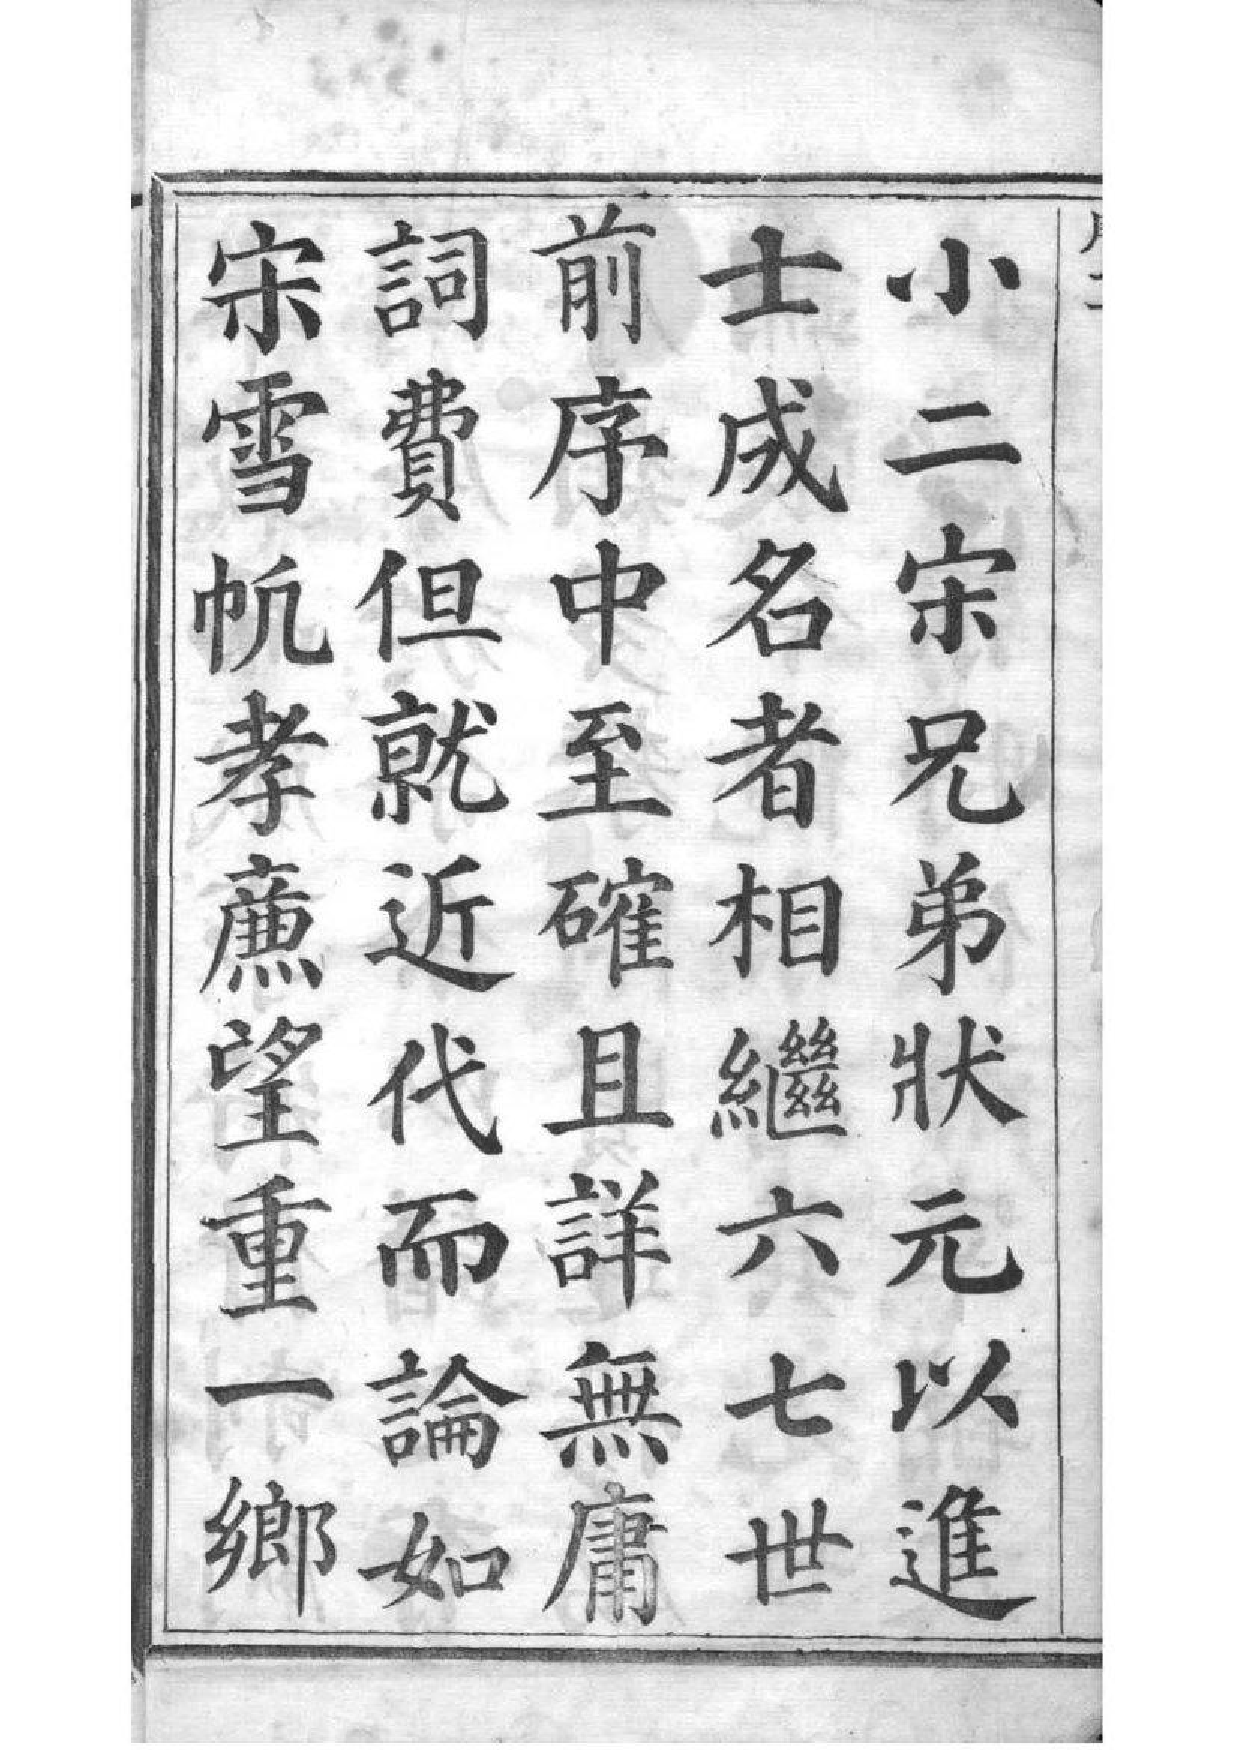 小二宋兄弟狀元以進
士成名者相繼六七世
前序中至確且詳無庸
詞費但就近代而論如
宋雪帆孝廉望重一鄉